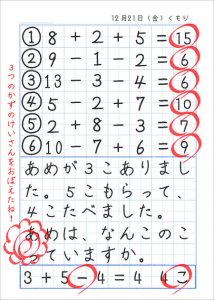 12月21日（金）くもり
①8+2+5=15
②9-1-2=6
③13-3-4=6
④5-2+7=10
⑤2+8-3=7
⑥10-7+6=9
3つのかずのけいさんをおぼえたね！
あめが3こありまし
た。5こもらって、
4こたべました。
あめは、なんこのこ
っていますか。
3+5-4=4 4こ